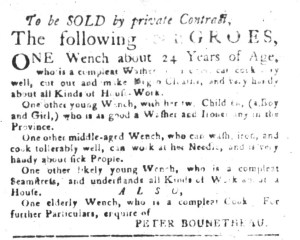 To be SOLD by private Contract,
The following NEGROES,
ONE Wench about 24 Years of Age,
who is a compleat Washer cook very
well, cut out and make Negro Cloaths, and very handy
about all Kinds of House-Work.
One other young Wench, with her two Children, (a Boy
and Girl,) who is as good a Washer and Ironer any in the
Province.
One other middle-aged Wench, who can wash, iron, and
cook tollerably well, can work at her Needle, and is very
handy about sick People.
One other likely young Wench, who is a compleat
Seamstress, and understands all Kinds of Work about a
House.
ALSO,
One elderly Wench, who is a compleat Cook. For
further Particulars, enquire of
PETER BOUNETHEAU.